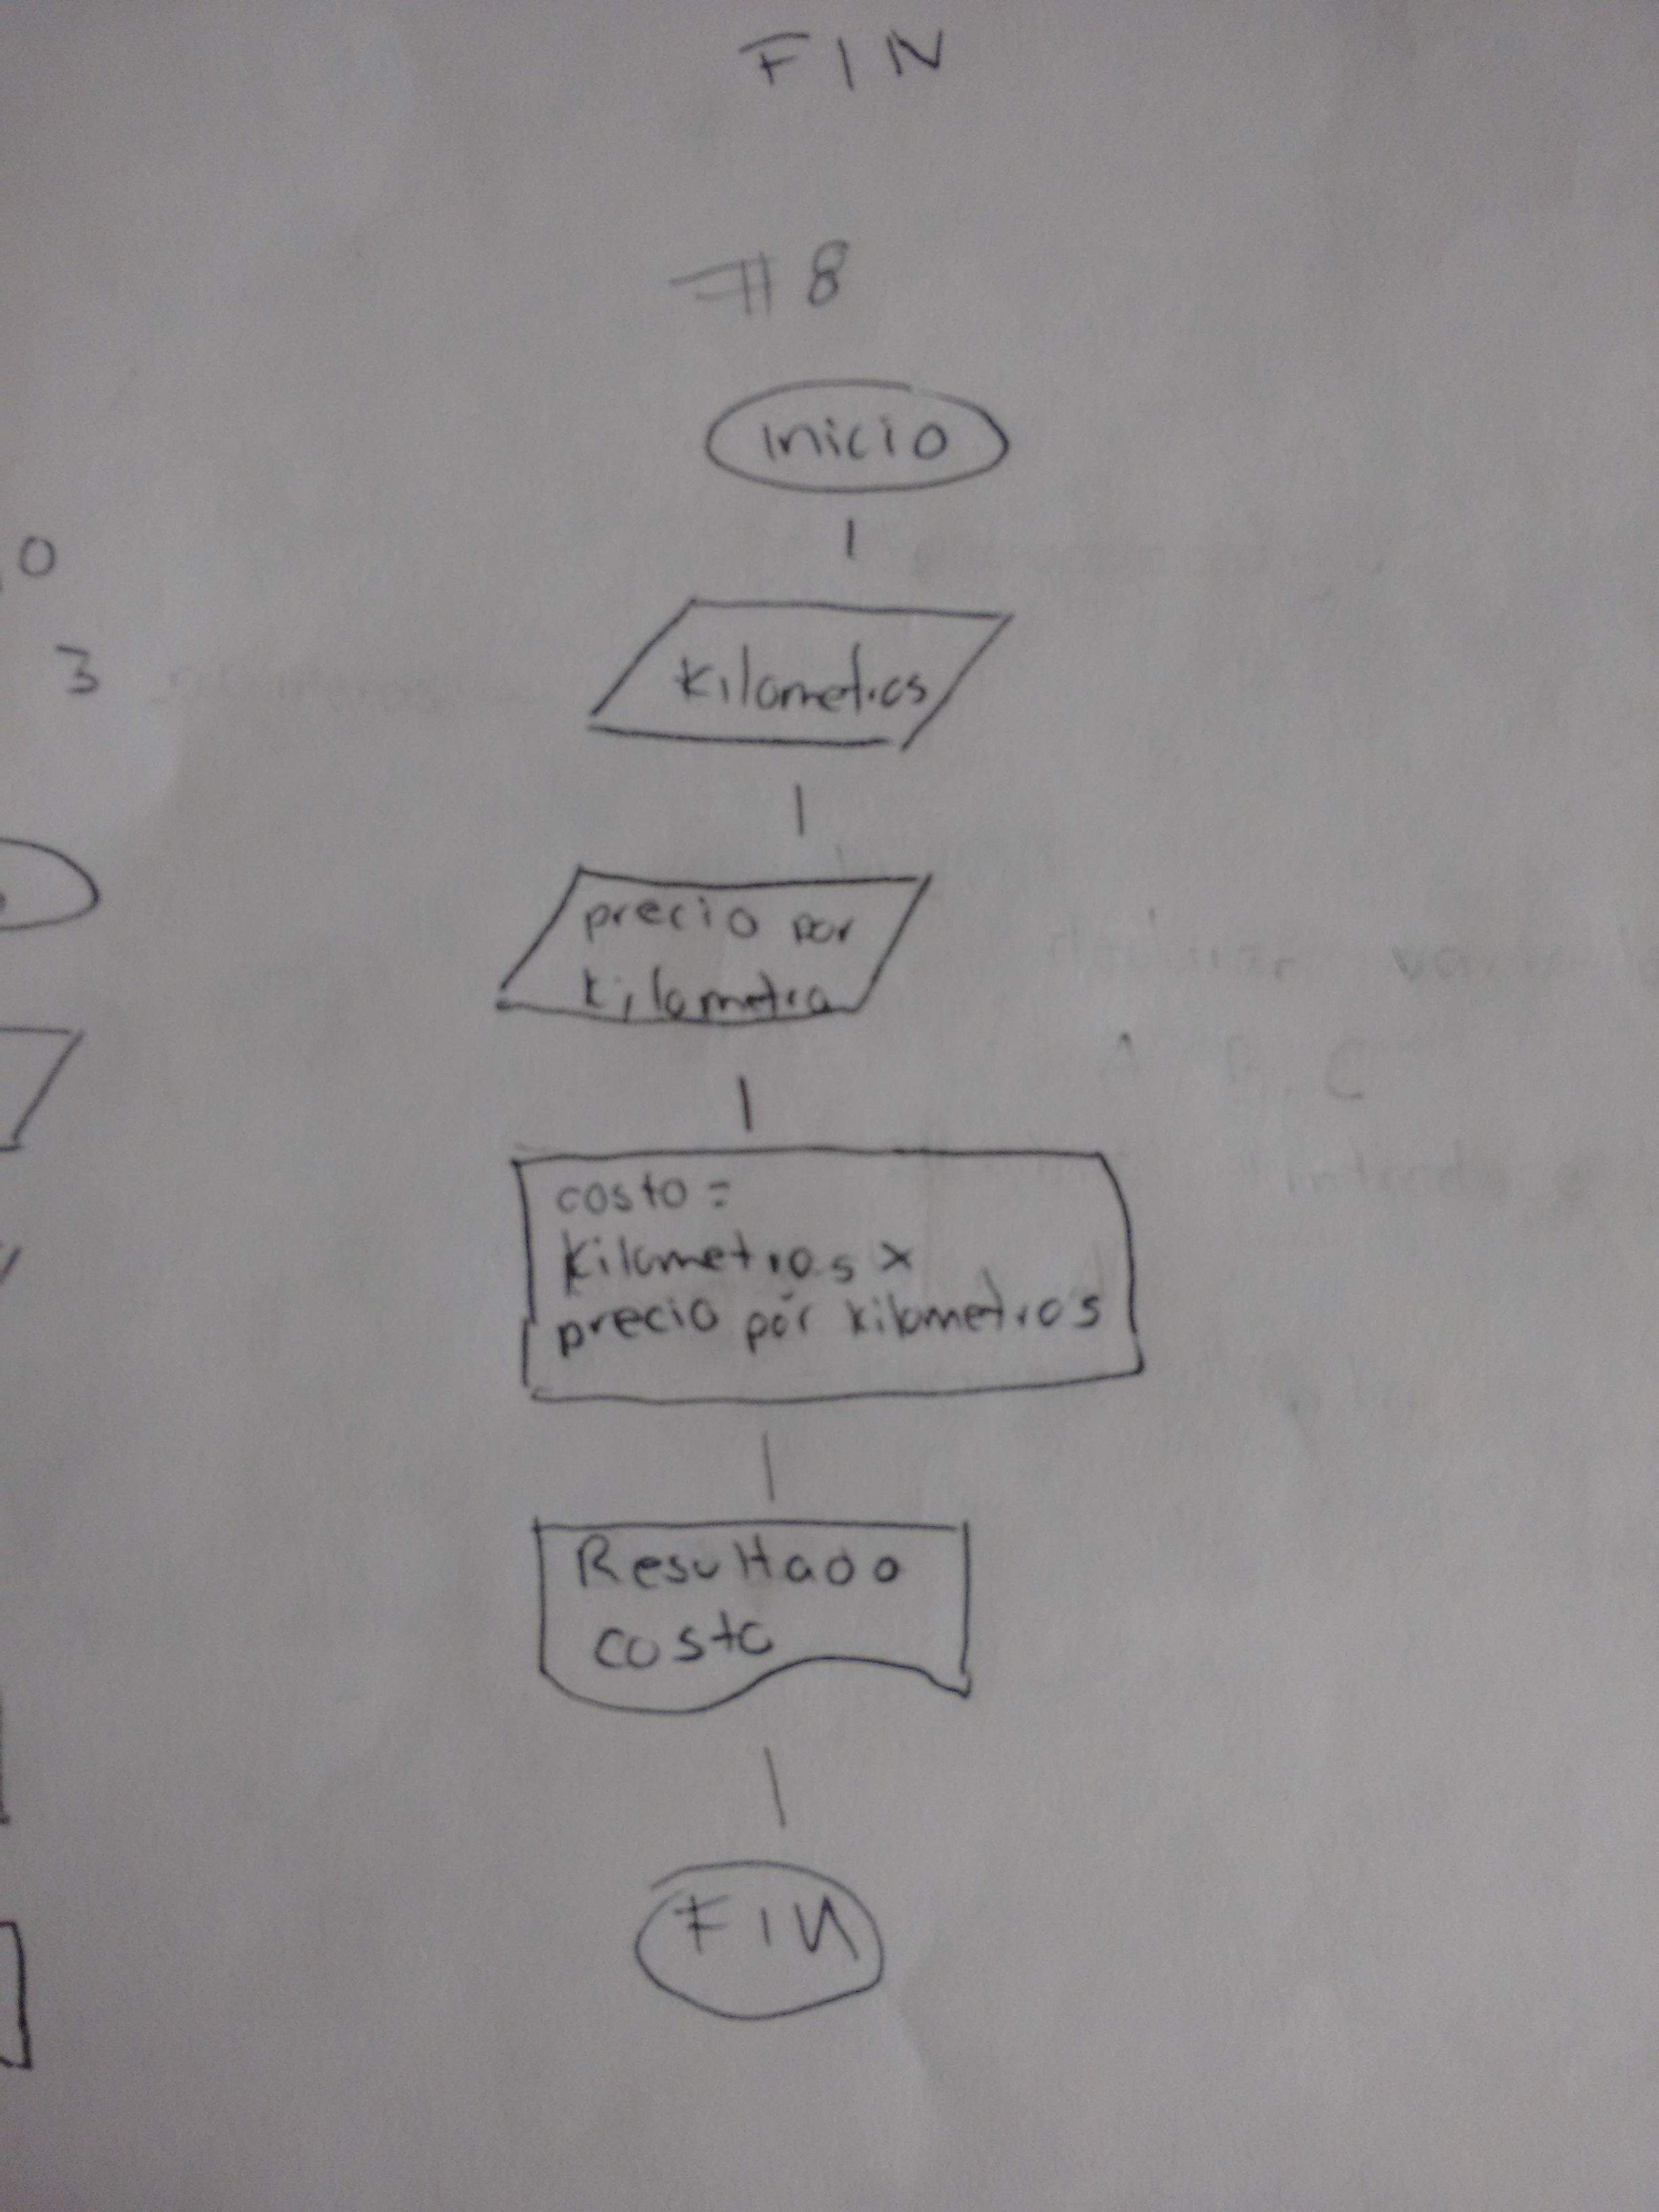 FIN
#8
inicio
kilometros
precio por
kilometro
costo =
kilometros x
precio por kilometros
Resultado
costo
FIN
O
3